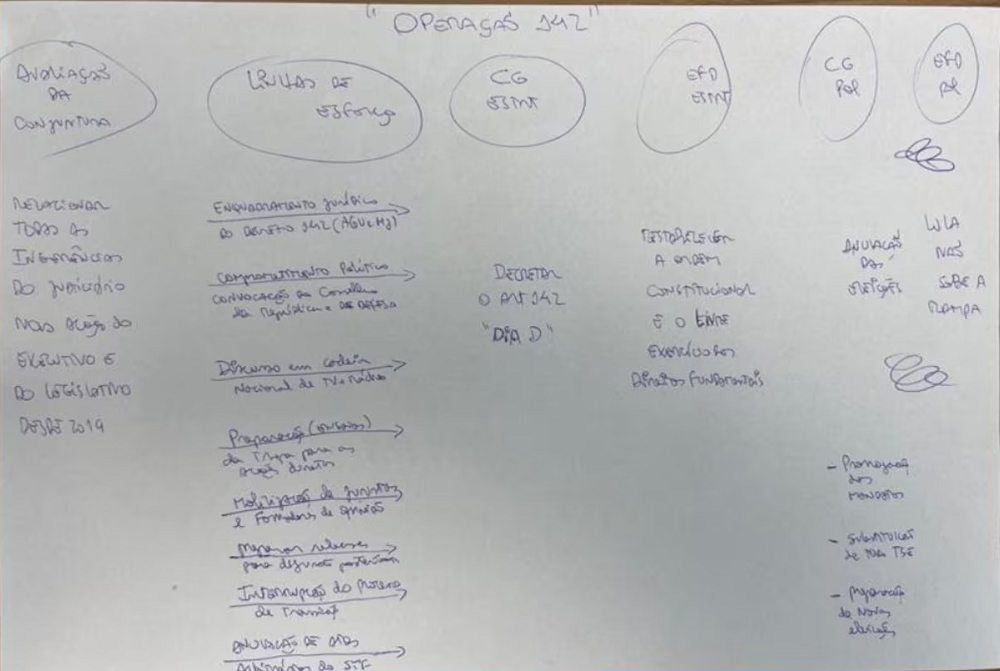 "OPERAÇÃO 142"
AVALIAÇÃO
DA
CONJUNTURA
LINHAS DE
ESFORÇO
CG
ESTNT
EFD
ESTNT
CG
POL
EFD
POL
RELACIONAR
TODAS AS
INTERFERÊNCIAS
DO JUDICIÁRIO
NAS AÇÕES DO
EXECUTIVO E
DO LEGISLATIVO
DESDE 2019
ENQUADRAMENTO JURÍDICO
DO DECRETO 142 (AGU e MJ)
COMPROMETIMENTO POLÍTICO
CONVOCAÇÃO do Conselho
da República e DE DEFESA
Discurso em cadeia
Nacional de TV e Rádio
Preparação
da Tropa para as
ações diretas
Mobilização de juristas
e Formadores de opinião
Preparar releases
para
Interrupção do Processo
de Transição
ANULAÇÃO DE ATOS
Arbitrários do STF
DECRETAR
O ART 142
"DIA D"
RESTABELECER
A ORDEM
CONSTITUCIONAL
E O LIVRE
EXERCÍCIO DOS
DIREITOS FUNDAMENTAIS
ANULAÇÃO
DAS
ELEIÇÕES
- Prorrogação
dos
MANDATOS
- SUBSTITUIÇÃO
de TODO TSE
- Preparação
de Novas
eleições
LULA
NÃO
SOBE A
RAMPA